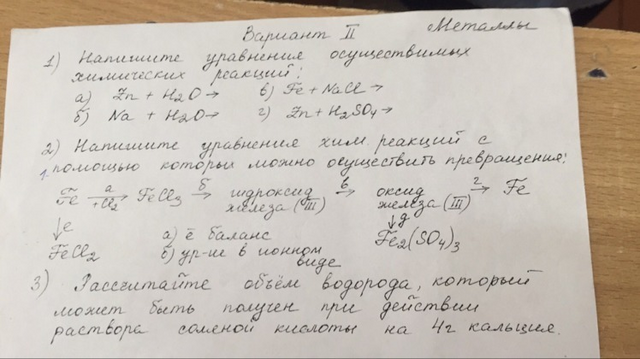 Вариант II Металлы
1) Напишите уравнения осуществимых
химических реакций:
а) Zn + H2O → в) Fe + NaCl →
б) Na + H2O → г) Zn + H2SO4 →
2) Напишите уравнения хим. реакций с
помощью которых можно осуществить превращения:
Fe а→ +Cl2 FeCl3 б→ гидроксид железа (III) в→ оксид железа (III) г→ Fe
↓е ↓д
FeCl2 а) ē баланс Fe2(SO4)3
б) ур-ие в ионном
виде
3) Рассчитайте объём водорода, который
может быть получен при действии
раствора соляной кислоты на 4г кальция.